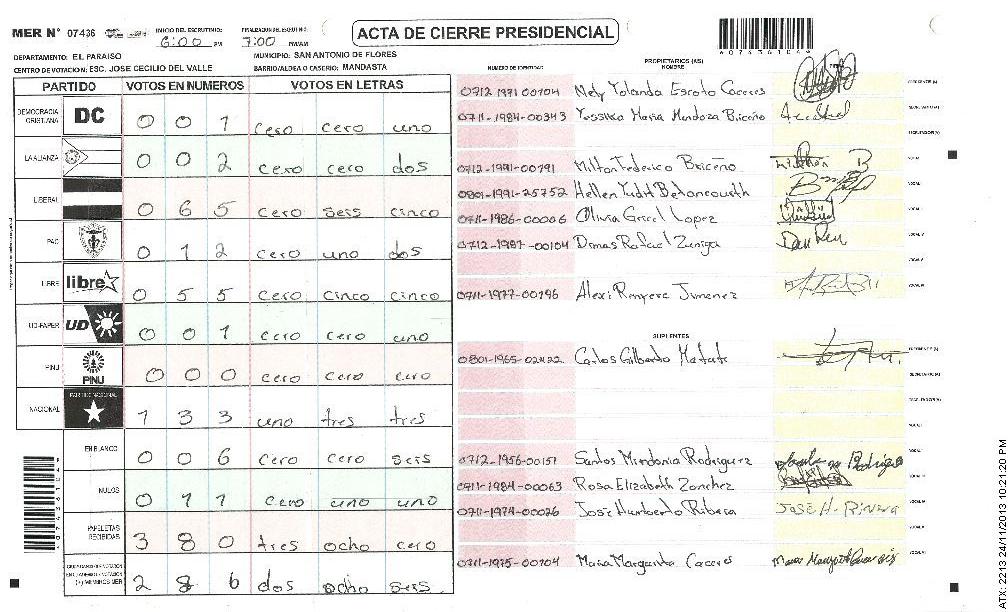 MER N° 07436 INICIO DEL ESCRUTINIO: 6:00 PM FINALIZACION DEL ESCRUTINIO: 7:00 PM/AM
ACTA DE CIERRE PRESIDENCIAL
DEPARTAMENTO: EL PARAISO MUNICIPIO: SAN ANTONIO DE FLORES
CENTRO DE VOTACION: ESC. JOSE CECILIO DEL VALLE BARRIO/ALDEA O CASERIO: MANDASTA
PARTIDO VOTOS EN NUMEROS VOTOS EN LETRAS
DEMOCRACIA CRISTIANA DC 0 0 1 cero cero uno
LA ALIANZA 0 0 2 cero cero dos
LIBERAL 0 6 5 cero seis cinco
PAC 0 1 2 cero uno dos
LIBRE libre 0 5 5 cero cinco cinco
UD-FAPER UD 0 0 1 cero cero uno
PINU PINU 0 0 0 cero cero cero
NACIONAL PARTIDO NACIONAL 1 3 3 uno tres tres
EN BLANCO 0 0 6 cero cero seis
NULOS 0 1 1 cero uno uno
PAPELETAS RECIBIDAS 3 8 0 tres ocho cero
2 8 6 dos ocho seis
NUMERO DE IDENTIDAD PROPIETARIOS (AS) NOMBRE
0712 1971 00104 Nely Yolanda Escoto Caceres
0711-1984-00343 Yessika Maria Mendoza Briceño
0712-1991-00191 Milton Federico Briceño
0801-1991-25752 Hellen Yudit Betancourth
0711-1986-00006 Olivia Gricel Lopez
0712-1987-00104 Dimas Rafael Zuniga
0711-1977-00196 Alexi Jimenez
SUPLENTES
0801-1965-02422 Carlos Gilberto
0712-1956-00151 Santos Mirdonia Rodriguez
0711-1984-00063 Rosa Elizabeth Zanchez
0711-1974-00026 Jose Humberto Ribera JOSE H. RIVERA
0711-1975-00104 Maria Margarita Caceres
ATX: 2213 24/11/2013 10:21:20 PM